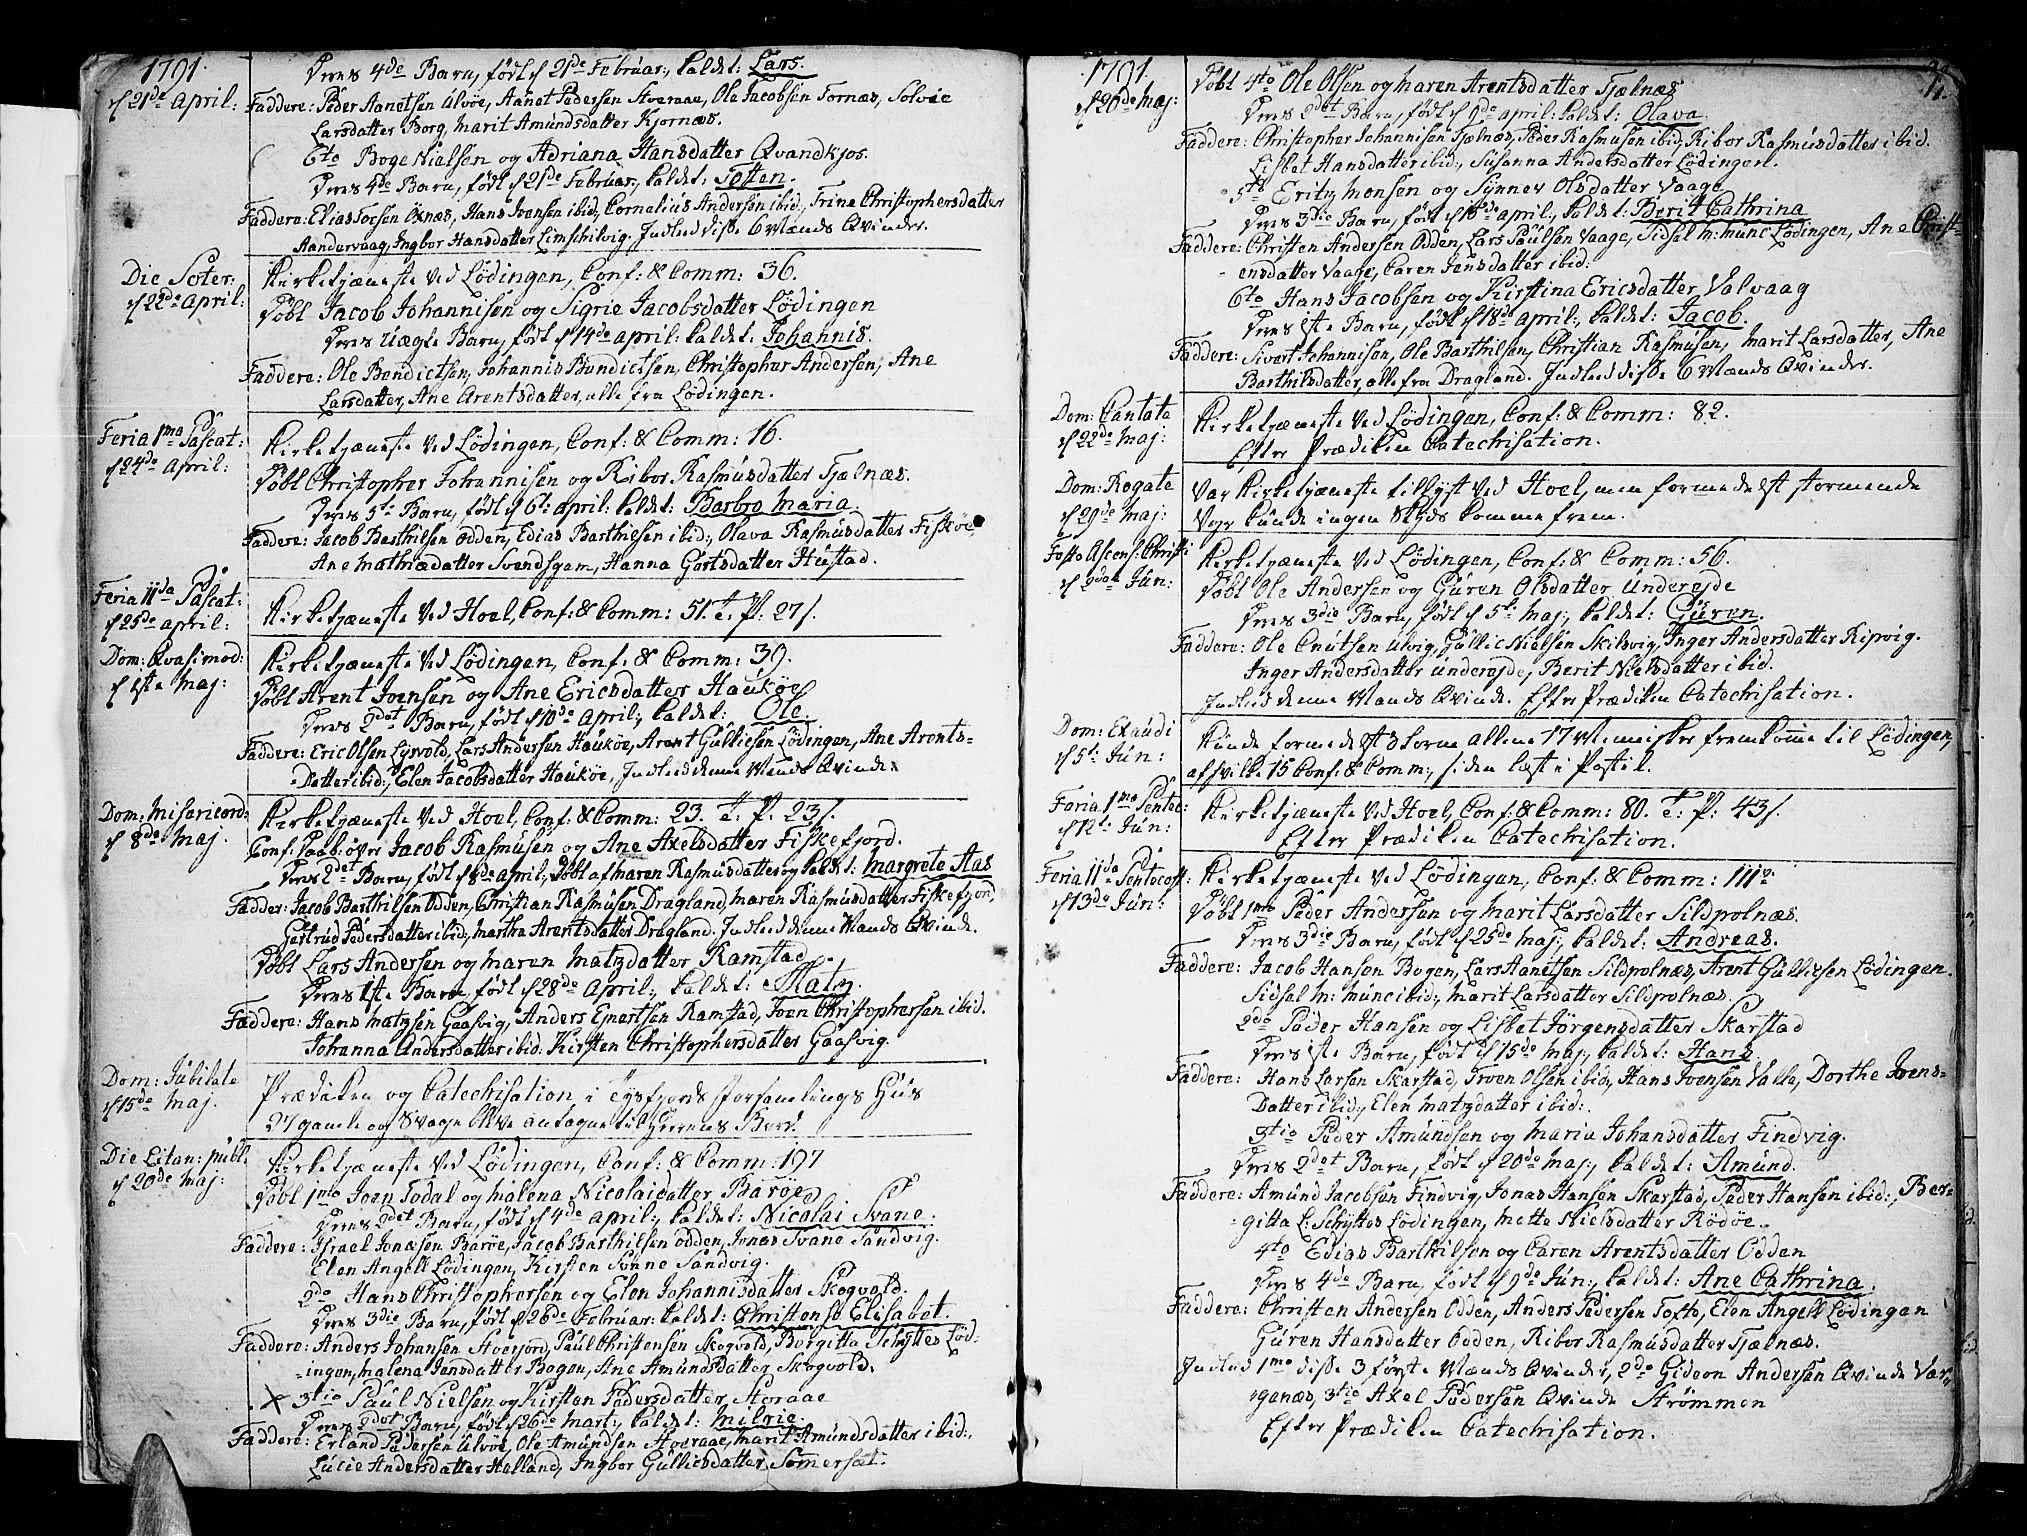 1791.
d 21de April:
Deres 4de Barn, født d 21de Februar:, kaldet: Lars.
Faddere: Peder Aanetsen Ulvöe, Aanet Pedersen Storaae, Ole Jacobsen Tornæs, Solvie
Larsdatter Borg, Marit Amundsdatter Kjornæs.
6te Boge Nielsen og Adriana Hansdatter Qvandkjos.
Deres 4de Barn, født d 21de Februar:, kaldet: Tosten.
Faddere: Elias Torsen Öxnæs, Hans Ivensen ibid:, Cornelius Andersen ibid:, Trine Christophersdatter
Aandervaag, Ingbor Hansdatter Limschilvig. Indled disse 6 Mænds Qvinder.
Die Soter:
d 22de April:
Kirketjæneste ved Lödingen, Conf: & Comm: 36.
Døbt Jacob Johannisen og Sigrie Jacobsdatter Lödingen
Deres Uægte Barn, født d 14de April: kaldet: Johannis.
Faddere: Ole Bendictsen, Johannis Bendictsen, Christopher Andersen, Ane
Larsdatter, Ane Arentsdatter, alle fra Lödingen.
Feria 1ma Pascat:
d 24de April:
Kirketjæneste ved Lödingen, Conf: & Comm: 16.
Døbt Christopher Johannisen og Ribor Rasmusdatter Tjælnæs.
Deres 5te Barn, født d 6te April: kaldet: Barbro Maria.
Faddere: Jacob Barthilsen Odden, Edias Barthilsen ibid:, Olava Rasmusdatter Fisköe,
Ane Mathiædatter Svendsgam, Hanna Gortsdatter Hustad.
Feria 11da Pascat:
d 25de April:
Kirketjæneste ved Hoel, Conf: & Comm: 51. T. P. 27 s.
Dom: Qvasimod:
d 1ste Maj:
Kirketjæneste ved Lödingen, Conf: & Comm: 39.
Døbt Arent Ivensen og Ane Ericsdatter Hauköe
Deres 2det Barn, født d 10de April:, kaldet: Ole.
Faddere: Eric Olsen Lysvold, Lars Andersen Hauköe, Arent Gullicsen Lödingen, Ane Arents-
datter ibid:, Elen Jacobsdatter Hauköe, Indled denne Mands Qvinde.
Dom: Misericord:
d 8de Maj.
Kirketjæneste ved Hoel, Conf: & Comm: 23. T: P. 23 s.
Conf: Daab: over Jacob Rasmusen og Ane Axelsdatter Fiskefjord.
Deres 2det Barn, født d 8de April:, døbt af Maren Rasmusdatter og kaldt: Margrete Aas
Fadder: Jacob Barthilsen Odden, Christian Rasmusen Dragland, Maren Rasmusdatter Fiskefjord,
Gertrud Pedersdatter ibid:, Martha Arentsdatter Dragland. Indled denne Mands Qvinde.
Døbt Lars Andersen og Maren Matzdatter Ramstad
Deres 1ste Barn født d 28de April:, kaldet: Matz.
Faddere: Hans Matzsen Gaasvig, Anders Ejnertsen Ramstad, Iven Christophersen ibid.
Johanna Andersdatter ibid: Kirsten Christophersdatter Gaasvig.
Dom: Jubilate
d 15de Maj.
Prædiken og Catechisation, i Tysfjords forsamlings Huus
27 gamle og Svage bleve antagne til Herrens Bord.
Die Litan: publ:
d 20de Maj:
Kirketjæneste ved Lödingen, Conf: & Comm: 197
Døbt 1mo Joen Todal og Malena Nicolaidatter Baröe
Deres 2det Barn, født d 4de April:, kaldet: Nicolai Svane.
Faddere: Israel Jonæsen Baröe, Jacob Barthilsen Odden, Jonas Svane Sandvig.
Elen Angell Lödingen, Kirsten Svane Sandvig.
2do Hans Christophersen og Elen Johannisdatter Skogvold.
Deres 3die Barn, født d 26de Februar: kaldet: Christense Elisabet.
Faddere: Anders Johansen Storjord, Paul Christensen Skogvold, Borgitta Schyttes Löd-
ingen, Malena Jensdatter Bogen, Ane Amundsdatter Skogvold.
× 3tio Paul Nielsen og Kirsten Pedersdatter Storaae
Deres 2det Barn, født d 26de Mart:, kaldet: Milrie.
Faddere: Erland Pedersen Ulvöe, Ole Amundsen Storaae, Marit Amundsdatter ibid:,
Lucie Andersdatter Halland, Ingbor Gullicsdatter Somerset.
1791.
d 20de Maj:
Døbt 4to Ole Olsen og Maren Arentsdatter Tjælnæs
Deres 2det Barn, født d 9de April: kaldet: Olava.
Faddere: Christopher Johannisen Tjælnæs, Peder Rasmusen ibid, Ribor Rasmusdatter ibid.
Lisbet Hansdatter ibid:, Susanna Andersdatter Lödingen.
5to Eritz Monsen og Synnev Olsdatter Vaage
Deres 3die Barn, født d 16de April:, kaldet: Berit Cathrina.
Faddere: Christen Andersen Odden, Lars Paulsen Vaage, Sidsal M: Munc Lödingen, Ane Christ-
ensdatter Vaage, Caren Jensdatter ibid:
6to Hans Jacobsen og Kirstina Ericsdatter Valvaag
Deres 1ste Barn, født d 18de April:, kaldet: Jacob.
Faddere: Sivert Johannisen, Ole Barthilsen, Christian Rasmusen, Marit Larsdatter, Ane
Barthilsdatter, alle fra Dragland. Indled disse 6 Mænds Qvinder.
Dom: Cantate
d 22de Maj:
Kirketjæneste ved Lödingen, Conf: & Comm: 82.
Efter Prædiken Catechisation.
Dom: Rogate
d 29de Maj:
Var Kirketjæneste tillyst ved Hoel, men formedelst stormende
Vejr kunde ingen Skyds komme frem.
Festo Ascens: Christi
d 2den Jun:
Kirketjæneste ved Lödingen, Conf: & Comm: 56.
Døbt Ole Andersen og Guren Olsdatter Underejde
Deres 3die Barn, født d 5te Maj:, kaldet: Guren.
Faddere: Ole Cnutsen Ulvig, Gullic Nielsen Skilvig, Inger Andersdatter Ripvig.
Inger Andersdatter Underejde, Berit Nielsdatter ibid.
Indled denne Mands Qvinde. Efter Prædiken Catechisation.
Dom: Exaudi
d 5te Jun:
Kunde formedelst Storm allene 17 Mennisker fremkomme til Lödingen,
af hvilke 15 Conf: & Comm:, siden læst i Postil.
Feria 1ma Pentec:
d 12te Jun:
Kirketjæneste ved Hoel, Conf: & Comm: 80. T: P: 43 s.
Efter Prædiken Catechisation.
Feria 11da Pentecost:
d 13de Jun:
Kirketjæneste ved Lödingen, Conf: & Comm: 111.
Døbt 1mo Peder Andersen og Marit Larsdatter Sildpolnæs.
Deres 3die Barn, født d 25de Maj:, kaldet: Andreas.
Faddere: Jacob Hansen Bogen, Lars Aanetsen Sildpolnæs, Arent Gullicsen Lödingen.
Sidsal M: Munc ibid:, Marit Larsdatter Sildpolnæs.
2do Peder Hansen og Lisbet Jörgensdatter Skarstad
Deres 1ste Barn, født d 15de Maj:, kaldet: Hans.
Faddere: Hans Larsen Skarstad, Troen Olsen ibid:, Hans Ivensen Valle, Dorthe Ivens-
datter ibid:, Elen Matzdatter ibid:.
3tio Peder Amundsen og Maria Johansdatter Findvig.
Deres 2det Barn, født d 20de Maj:, kaldet: Amund.
Faddere: Amund Jacobsen Findvig, Jonas Hansen Skarstad, Peder Hansen ibid:, Ber-
gitta L: Schyttes Lödingen, Mette Nielsdatter Rödöe.
4to Edias Barthilsen og Caren Arentsdatter Odden
Deres 4de Barn, født d 9de Jun:, kaldet: Ane Cathrina.
Faddere: Christen Andersen Odden, Anders Pedersen Tofto, Elen Angell Lödingen
Guren Hansdatter Odden, Ribor Rasmusdatter Tjælnæs.
Indled 1mo disse 3 første Mænds Qvinder, 2do Gideon Andersen Qvinde Var-
genæs, 3tio Axel Pedersen Qvinde Strömmen
Efter Prædiken Catechisation.